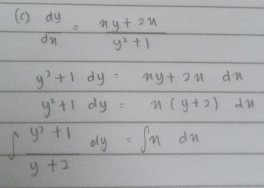 (c) dy/dx = xy + 2x / y² + 1
y² + 1 dy = xy + 2x dx
y² + 1 dy = x (y + 2) dx
∫ y² + 1 / y + 2 dy = ∫ x dx